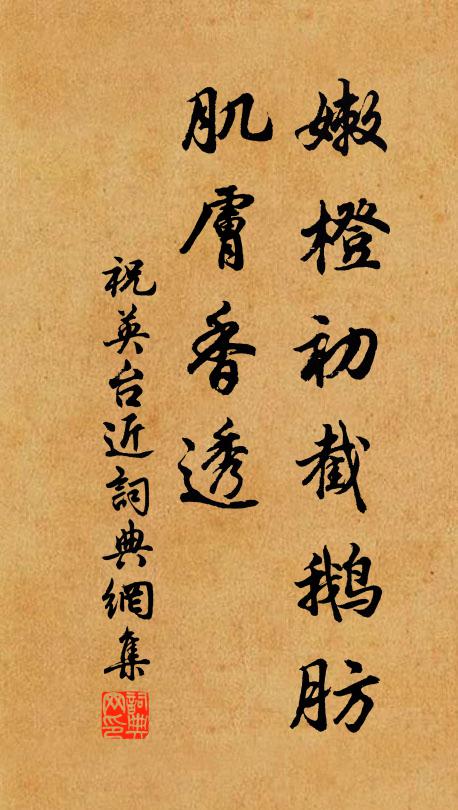 嫩橙初截鹅肪
肌膚香透
祝英台近詞典網集
詞典网印